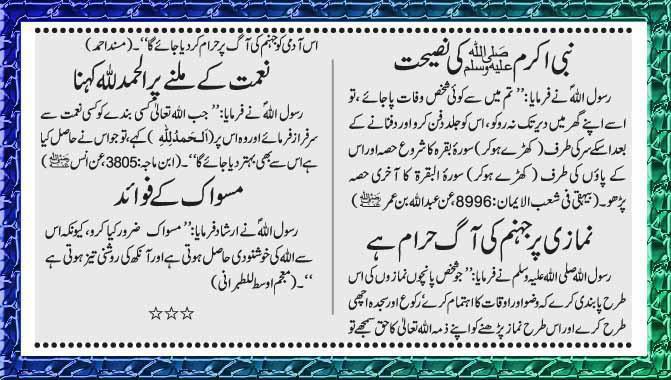 نبی اکرم ﷺ کی نصیحت
رسول اللہؐ نے فرمایا:’’تم میں سے کوئی شخص وفات پا جائے، تو
اسے اپنے گھر میں دیر تک نہ روکو، اس کو جلد دفن کرو اور دفنانے کے
بعد اسکے سر کی طرف (کھڑے ہوکر) سورۂ بقرہ کا شروع حصہ اور اس
کے پاؤں کی طرف (کھڑے ہوکر) سورۃ البقرۃ کا آخری حصہ
پڑھو۔ (بیہقی فی شعب الایمان:8996، عن عبداللہ بن عمر ﷺ)
نمازی پر جہنم کی آگ حرام ہے
رسول اللہ صلی اللہ علیہ وسلم نے فرمایا:’’جو شخص پانچوں نمازوں کی اس
طرح پابندی کرے کہ وضو اور اوقات کا اہتمام کرے، رکوع اور سجدہ اچھی
طرح کرے اور اس طرح نماز پڑھنے کو اپنے ذمہ اللہ تعالیٰ کا حق سمجھے تو
اس آدمی کو جہنم کی آگ پر حرام کر دیا جائے گا‘‘۔ (مسند احمد)
نعمت کے ملنے پر الحمد للہ کہنا
رسول اللہؐ نے فرمایا:’’جب اللہ تعالیٰ کسی بندے کو کسی نعمت سے
سرفراز فرمائے اور وہ اس پر (اَلْحَمْدُ لِلّٰهِ) کہے، تو جو اس نے حاصل کیا
ہے اس سے بھی بہتر دیا جائے گا‘‘۔ (ابن ماجہ:3805، عن انس ﷺ)
مسواک کے فوائد
رسول اللہؐ نے ارشاد فرمایا:’’مسواک ضرور کیا کرو، کیونکہ اس
سے اللہ کی خوشنودی حاصل ہوتی ہے اور آنکھ کی روشنی تیز ہوتی ہے
‘‘۔ (معجم اوسط للطبرانی)
☆☆☆